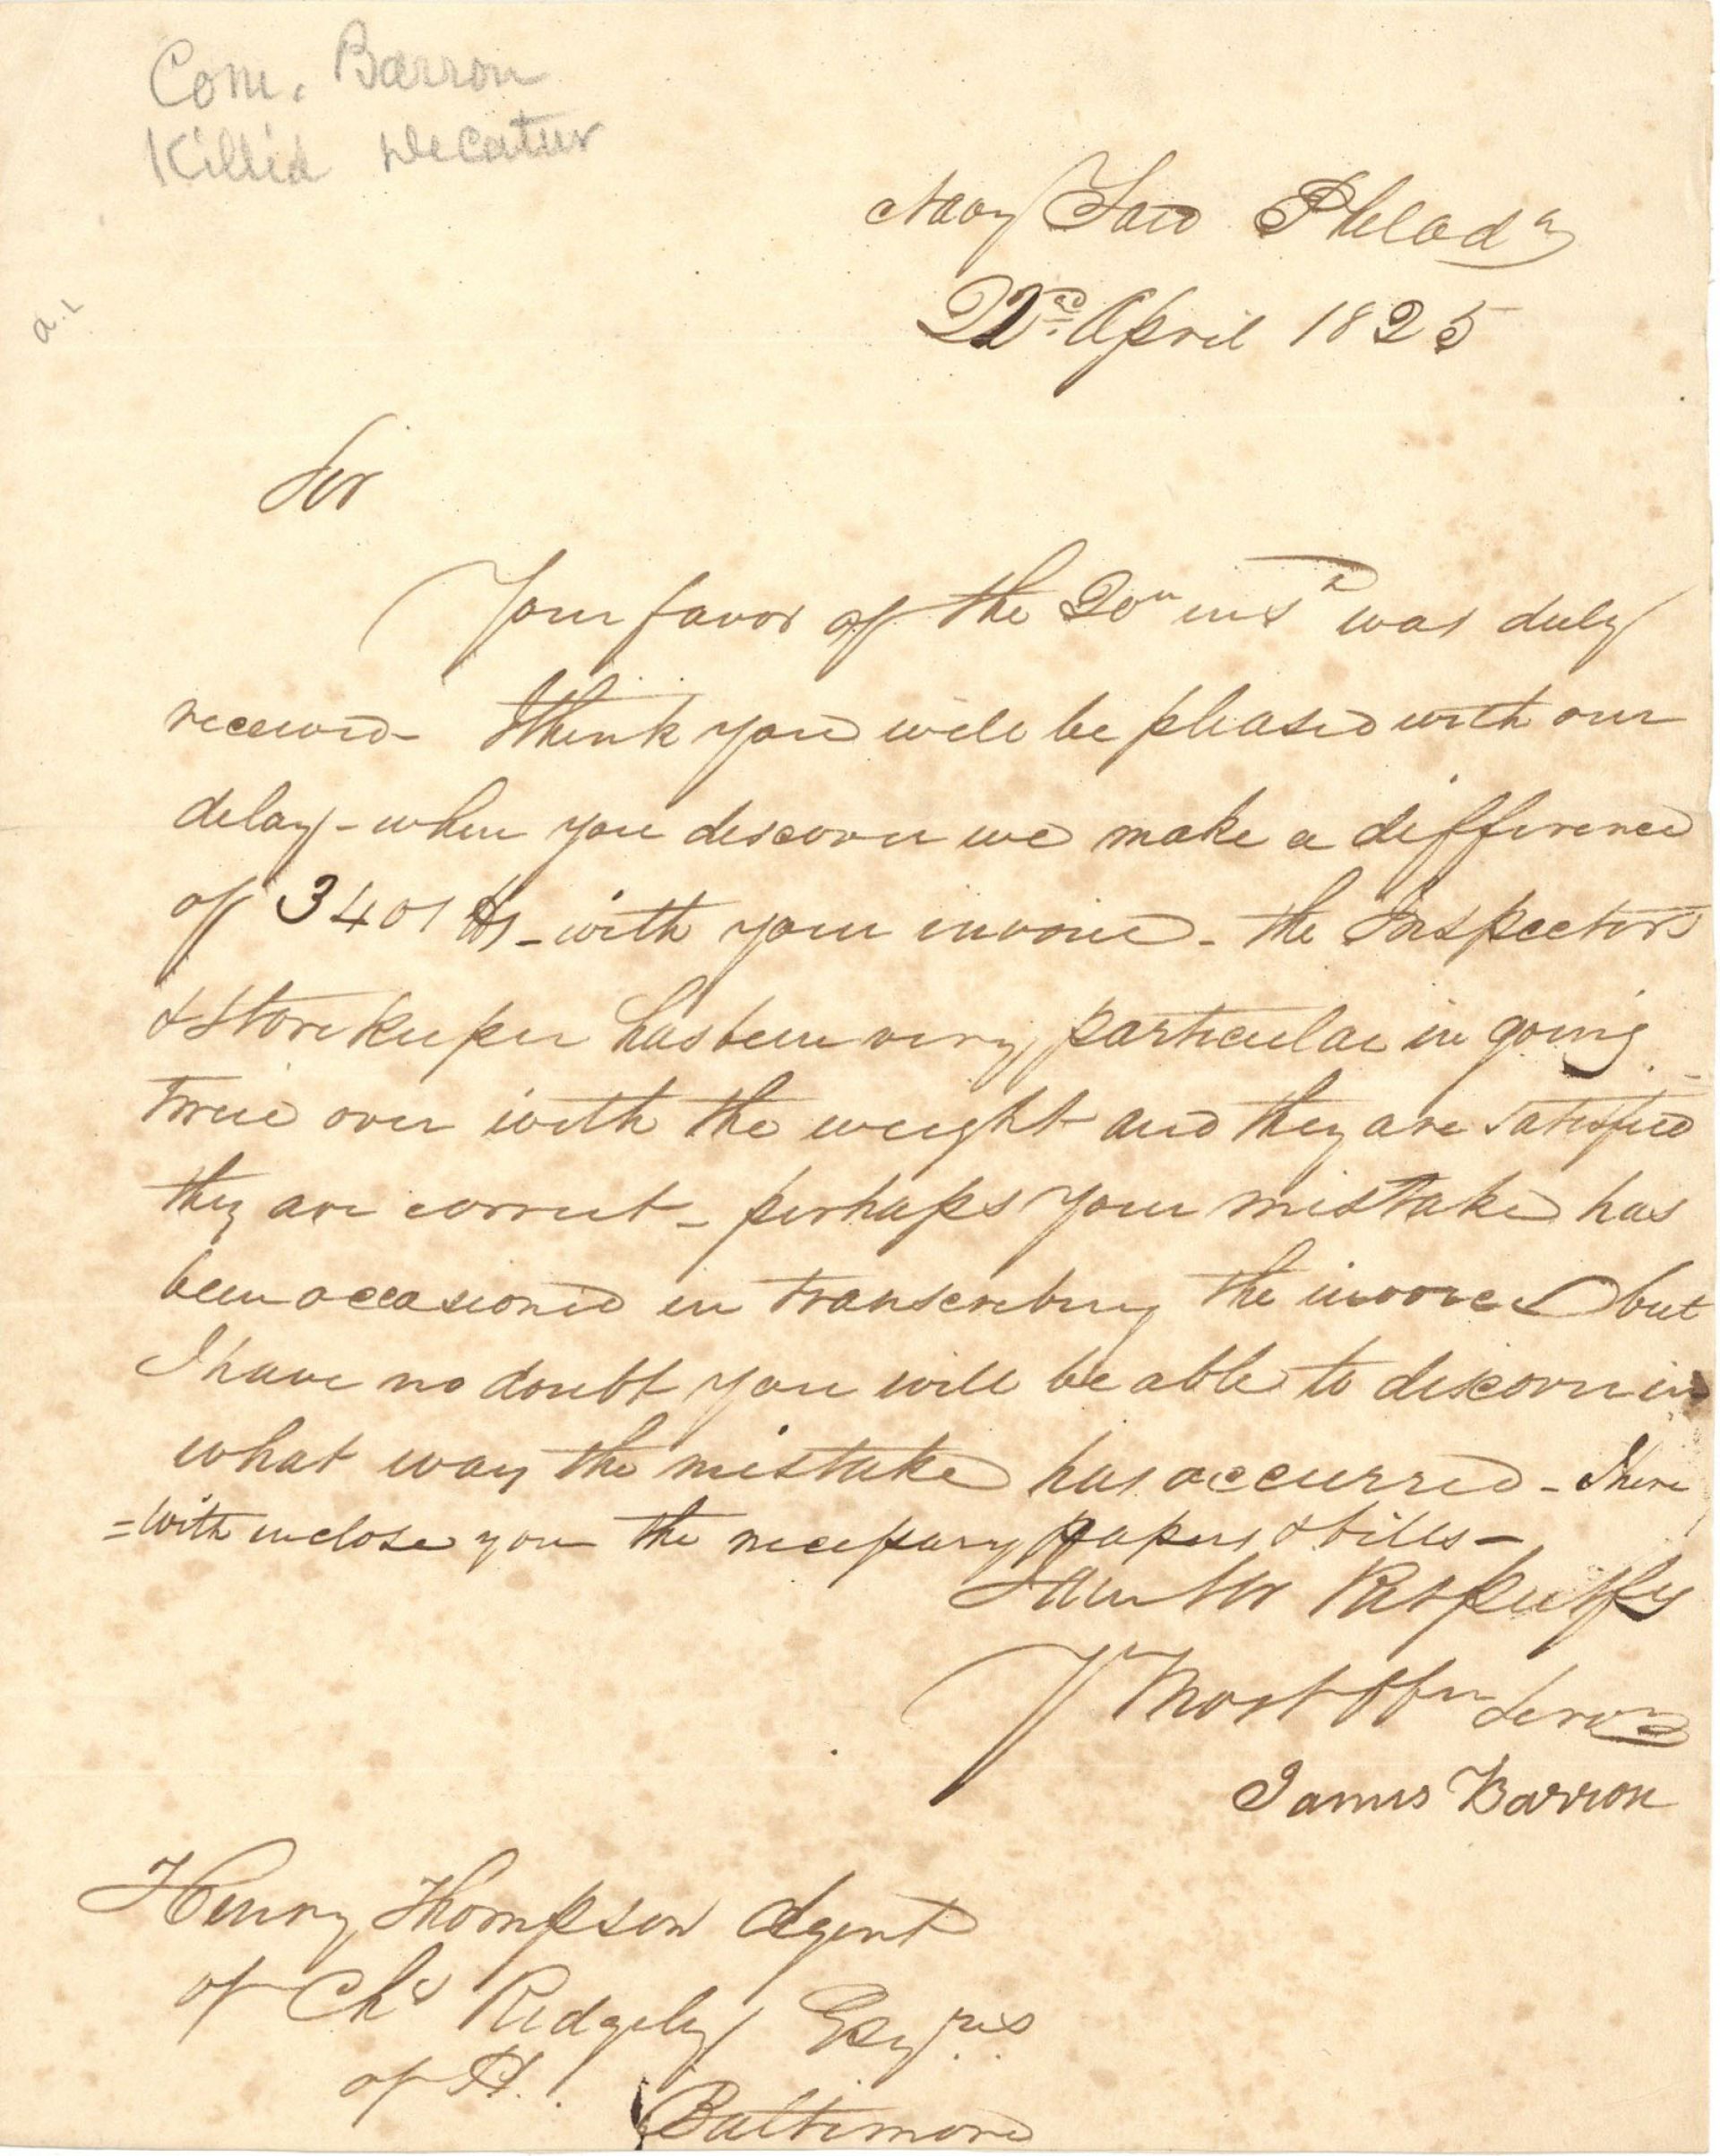 Com. Barron
Killed Decatur
a.l
Navy Yard Philad^a
22^nd April 1825
Sir
Your favor of the 20^th ins^t was duly
received - I think you will be pleased with our
delay - when you discover we make a difference
of 3401 lbs - with your invoice - the Inspectors
& Storekeeper has been very particular in going
twice over with the weight and they are satisfied
they are correct - perhaps your mistake has
been occasioned in transcribing the invoice but
I have no doubt you will be able to discover in
what way the mistake has occurred - I here
=with inclose you the necessary papers & bills -
I am Sir Respectfy
Y^r Most Ob^n Serv^t
James Barron
Henry Thompson Agent
of Ch^s Ridgely Esq^res
of H.
Baltimore